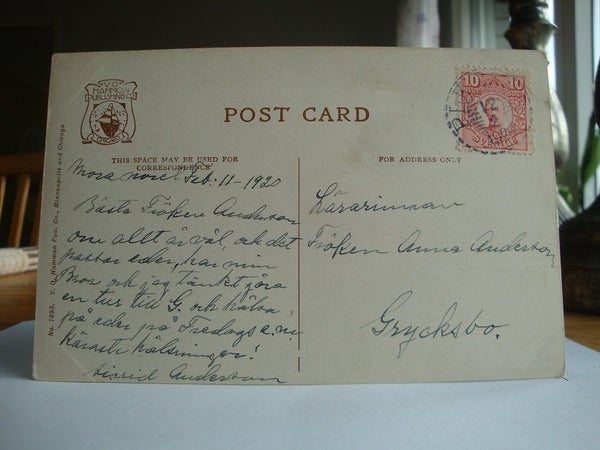 V.O.
HAMMON
PUBLISHING CO.
CHICAGO
POST CARD
10 10
THIS SPACE MAY BE USED FOR
CORRESPONDENCE
FOR ADDRESS ONLY
No. 1893. V. O. Hammon Pub. Co., Minneapolis and Chicago
Mora Feb. 11 - 1920
Bästa Fröken Anderson
om allt är väl, och det
passar eder, har min
Bror och jag tänkt göra
en tur till G. och hälsa
på eder på Fredags e.m.
Käraste hälsningar!
Sigrid Anderson
Lärarinnan
Fröken Anna Anderson
Grycksbo.